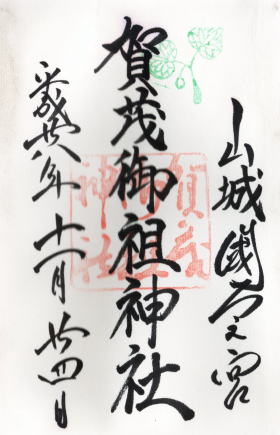 山城國一之宮
賀茂御祖神社
平成廿八年十一月廿四日